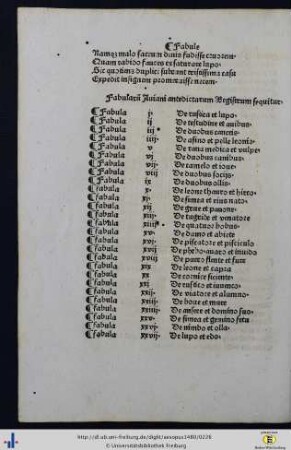 ¶Fabule
Namqz malo factum diuis fudisse cruorem
Quam rabido fauces exsaturare lupo
Sic quotiens duplici subeunt tristissima casu
Expedit insignem promeruisse necem
Fabularū Auiani antedictarum Registrum sequitur
¶Fabula j. De rustica et lupo.
¶Fabula ij De testudine et auibus.
¶Fabula iij De duobus cancris.
¶Fabula iiij De asino et pelle leonis.
¶Fabula v De rana medica et vulpe
¶Fabula vj De duobus canibus
¶Fabula vij De camelo et ioue.
¶Fabula viij De duobus socijs.
¶Fabula ix De duobus ollis.
¶Fabula x. De leone thauro et hirco.
¶Fabula xj. De simea et eius nato.
¶Fabula xij De grue et pauone.
¶Fabula xiij De tigride et venatore
¶Fabula xiiij De quatuor bobus.
¶Fabula xv De piscatore et pisciculo
¶Fabula De phebo auaro et inuido
¶Fabula De puero flente et fure
¶Fabula xix De leone et capra
¶Fabula xx De cornice siciente.
¶Fabula De rustico et iuuenco
¶Fabula De viatore et
¶Fabula De boue et mure
¶Fabula De ansere et domino suo
¶Fabula xxv. De simea et gemino fetu
¶Fabula xxvj. De nimbo et olla.
¶Fabula xxvij. De lupo et edo.
http://dl.ub.uni-freiburg.de/diglit/aesopus1480/0228
© Universitätsbibliothek Freiburg